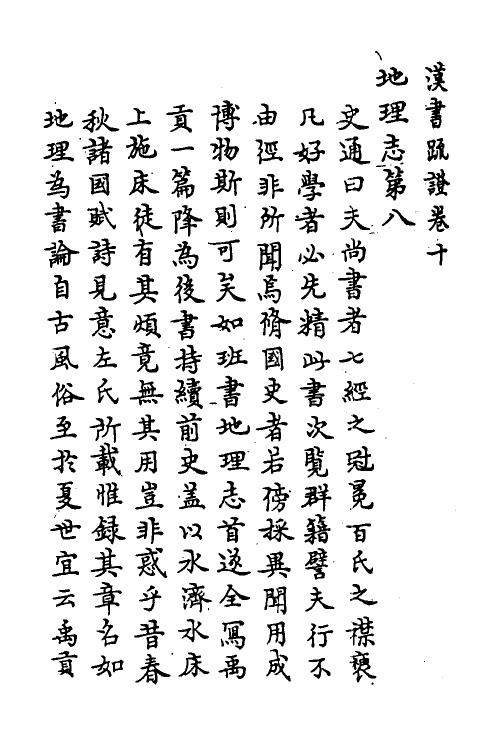 漢書疏證卷十
地理志第八
史通曰夫尚書者七經之冠冕百氏之襟褎
凡好學者必先精此書次覽群籍譬夫行不
由徑非所聞焉脩國史者若傍採異聞用成
博物斯則可矣如班書地理志首遂全寫禹
貢一篇降為後書持續前史盖以水濟水床
上施床徒有其煩竟無其用豈非惑乎昔春
秋諸國賦詩見意左氏所載惟録其章名如
地理為書論自古風俗至於夏世宜云禹貢